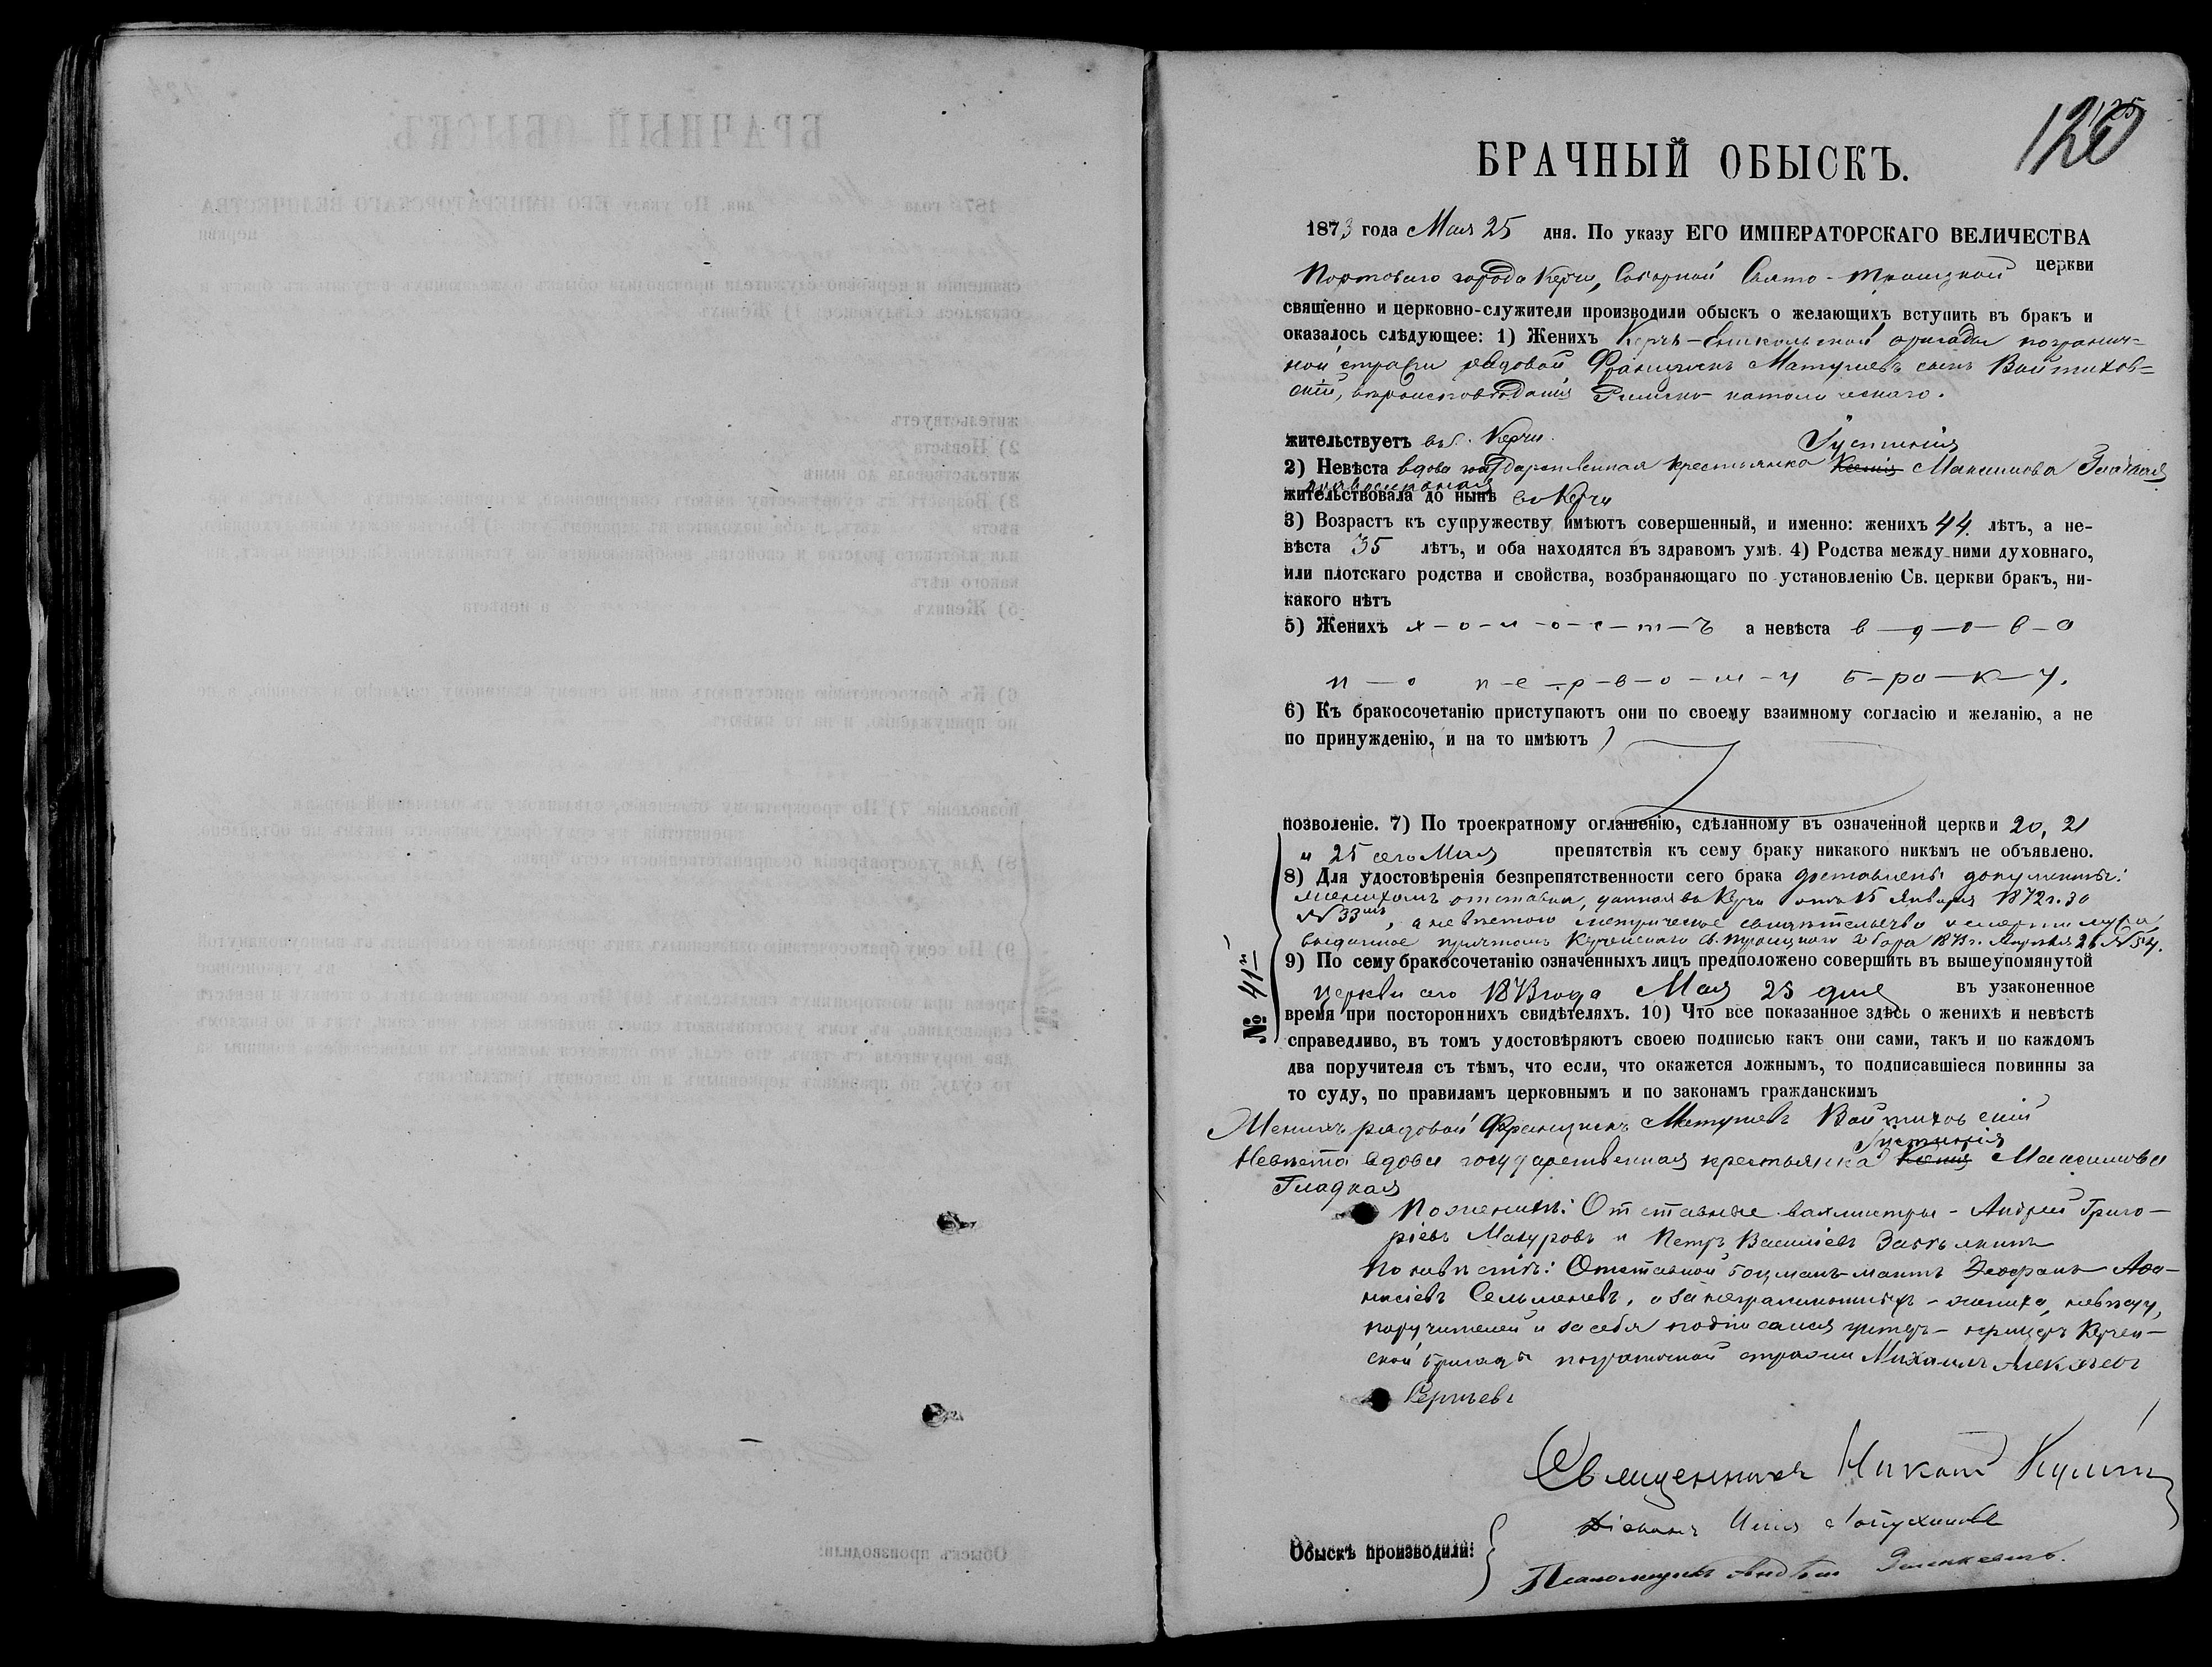 125
120
БРАЧНЫЙ ОБЫСКЪ.
1873 года Мая 25 дня. По указу ЕГО ИМПЕРАТОРСКАГО ВЕЛИЧЕСТВА
Портоваго города Керчи, Соборной Свято-Троицкой церкви
священно и церковно-служители производили обыскъ о желающихъ вступить въ бракъ и
оказалось слѣдующее: 1) Женихъ Керчь-Еникольской бригады погранич=
ной стражи рядовой Францискъ Матущевъ сынъ Войтихов=
скій, вѣроисповѣданія Римско-католическаго.
жительствуетъ въ г. Керчи.
Іустинія
2) Невѣста вдова государственная крестьянка Ксенія Максимова Гладкая
православная
жительствовала до нынѣ въ Керчи
3) Возрастъ къ супружеству имѣютъ совершенный, и именно: женихъ 44 лѣтъ, а не-
вѣста 35 лѣтъ, и оба находятся въ здравомъ умѣ. 4) Родства между ними духовнаго,
или плотскаго родства и свойства, возбраняющаго по установленію Св. церкви бракъ, ни-
какого нѣтъ
5) Женихъ х-о-л-о-с-т-ъ а невѣста в-д-о-в-а
п-о п-е-р-в-о-м-у б-ра-к-у.
6) Къ бракосочетанію приступаютъ они по своему взаимному согласію и желанію, а не
по принужденію, и на то имѣютъ
позволеніе. 7) По троекратному оглашенію, сдѣланному въ означенной церкви 20, 21
и 25 сего Мая препятствія къ сему браку никакого никѣмъ не объявлено.
8) Для удостовѣренія безпрепятственности сего брака доставлены документы:
женихомъ отставка, данная въ Керчи отъ 15 Января 1872 г. за
№ 33мъ, а невѣстою метрическое свидѣтельство о смерти мужа,
выданное причтомъ Керченскаго Св. Троицкаго Собора 1873 г. Апрѣля 26 № 54.
№ 41й
9) По сему бракосочетанію означенныхъ лицъ предположено совершить въ вышеупомянутой
церкви сего 1873 года Мая 25 дня въ узаконенное
время при постороннихъ свидѣтеляхъ. 10) Что все показанное здѣсь о женихѣ и невѣстѣ
справедливо, въ томъ удостовѣряютъ своею подписью какъ они сами, такъ и по каждомъ
два поручителя съ тѣмъ, что если, что окажется ложнымъ, то подписавшіеся повинны за
то суду, по правиламъ церковнымъ и по законамъ гражданскимъ
Женихъ рядовой Францискъ Матущевъ Войтиховскій
Іустинія
Невѣста вдова государственная крестьянка Ксенія Максимова
Гладкая
По женихѣ: Отставные вахмистры - Андрей Григо-
рьевъ Мазуровъ и Петръ Васильевъ
По невѣстѣ: Отставной боцманъ-матъ Феофанъ Афа-
насіевъ Сельменевъ, а за неграмотныхъ - жениха, невѣсту,
поручителей и за себя подписался унтеръ-офицеръ Керчен-
ской бригады пограничной стражи Михаилъ Алексѣевъ
Сергѣевъ
Священникъ Николай
Діаконъ Илія Лопухинъ
Обыскъ производили:
Псаломщикъ Андрей